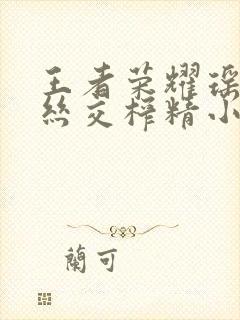 王者荣耀瑶
丝交榨精小
蘭可